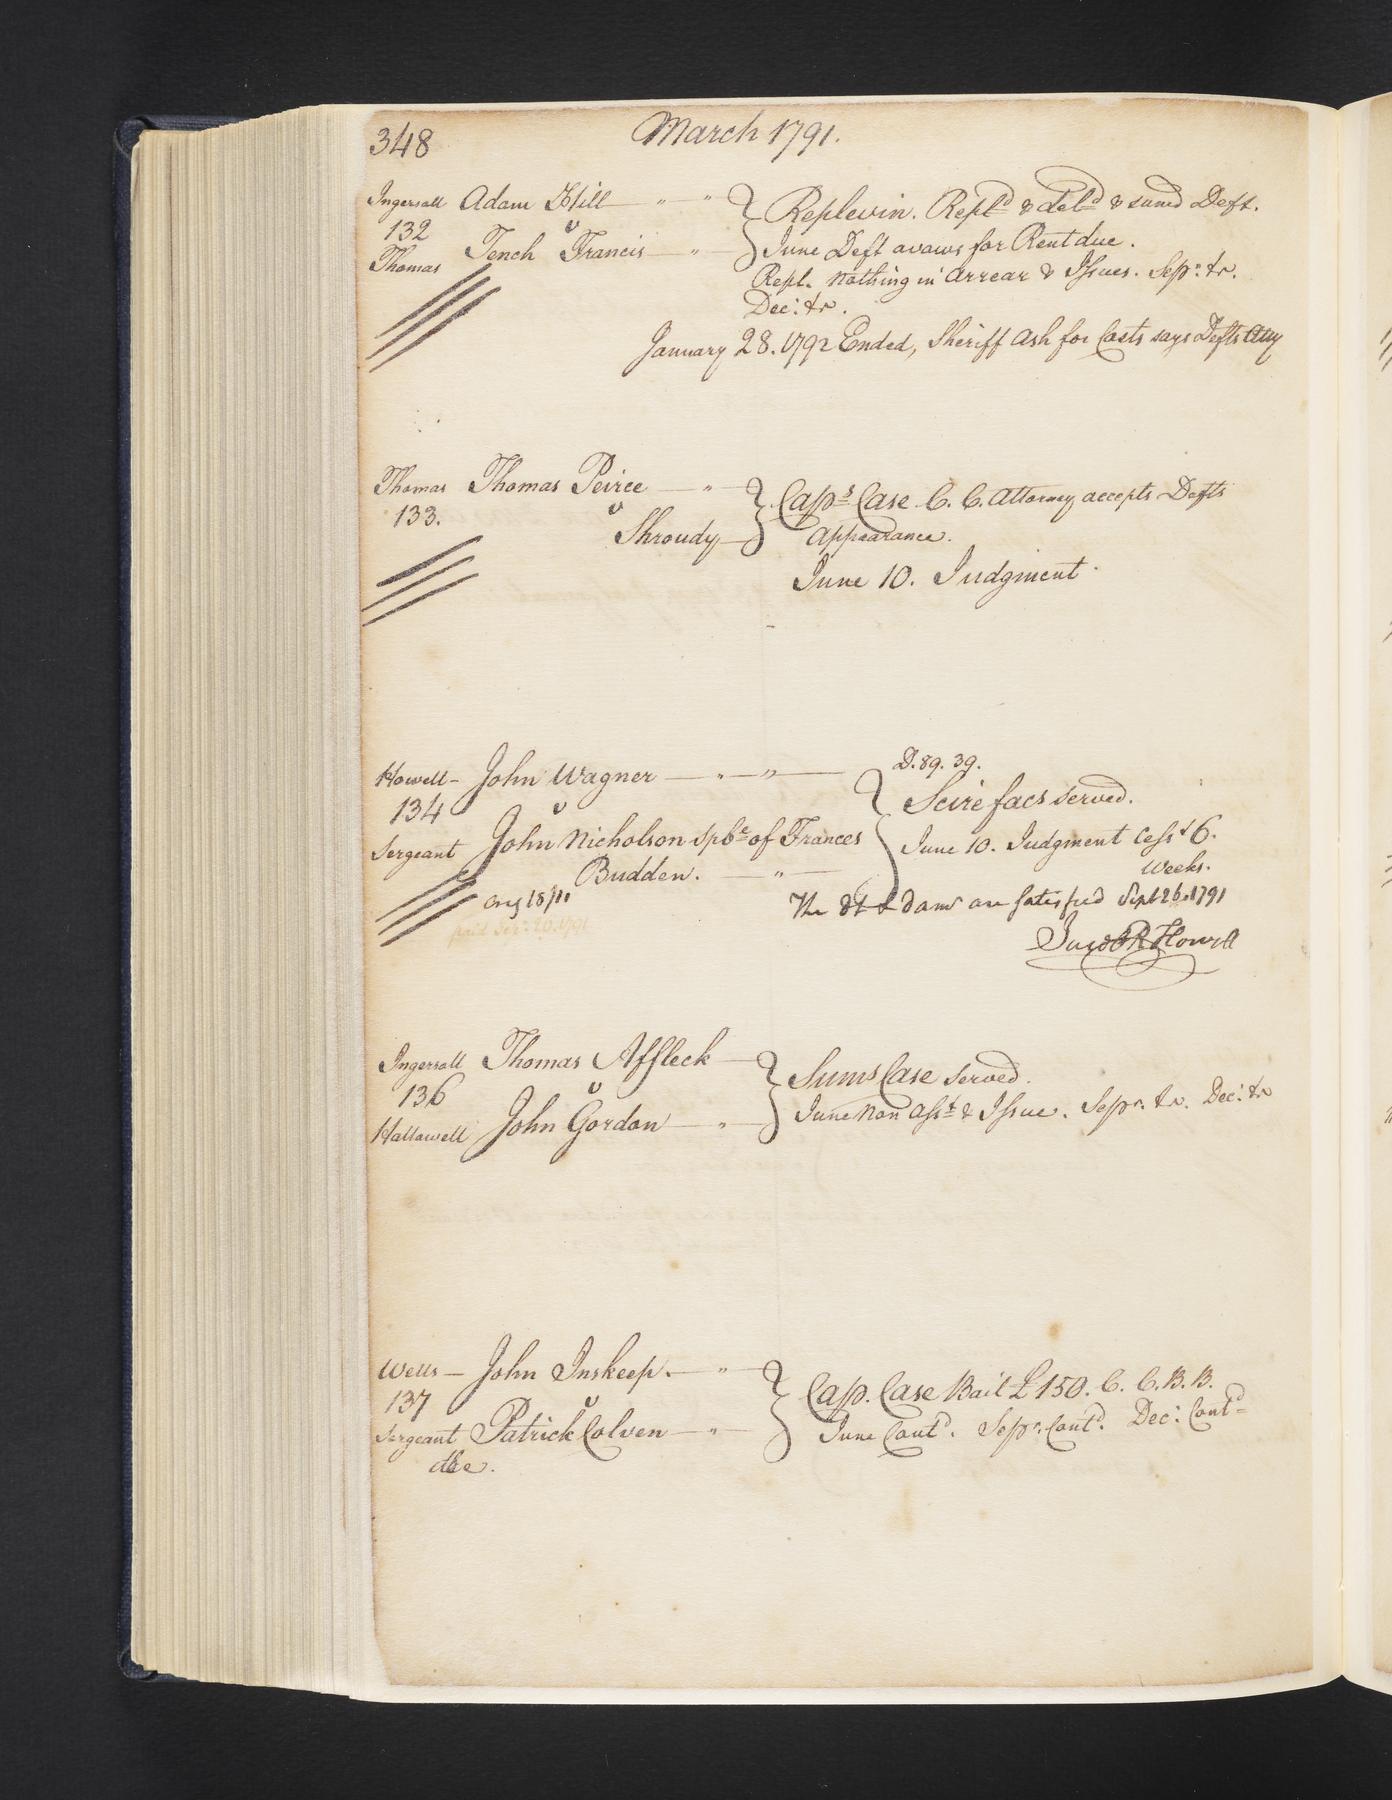 348 March 1791.
Ingersoll Adam Hill — " — " Replevin. Repl.d & del.d & sum.d Deft.
132 v June Deft avows for Rent due.
Thomas Tench Francis — " —
Repl. nothing in arrear & Issues. Sepr. &c.
Dec: &c.
January 28. 1792 Ended, Sheriff Ash for Costs says Defts Atty
Thomas Thomas Peirce — " — Caps Case C. C. Attorney accepts Defts
133. v
Shroudy — appearance.
June 10. Judgment.
D. 89. 39.
Howell — John Wagner — " — " — Scire facs served.
134 v
Sergeant John Nicholson spbe of Frances June 10. Judgment Cesst 6.
Budden. — " — Weeks.
The dt & dams are satisfied Sept 26. 1791
paid Sepr. 20. 1791
Jacob R Howell
Ingersoll Thomas Affleck — Sums Case served.
136 v
Hallowell John Gordon — " — June Non Asst & Issue. Sepr. &c. Dec: &c
Wells — John Inskeep. — " — Cap. Case Bail £150. C. C. B. B.
137 v
Sergeant Patrick Colven — " — June Contd. Sepr. Contd. Dec: Contd